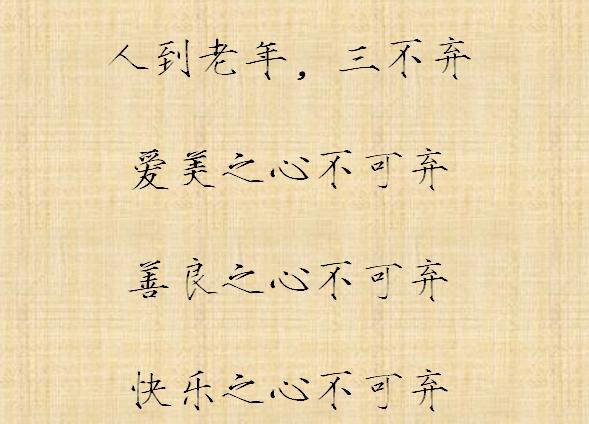 人到老年，三不弃
爱美之心不可弃
善良之心不可弃
快乐之心不可弃